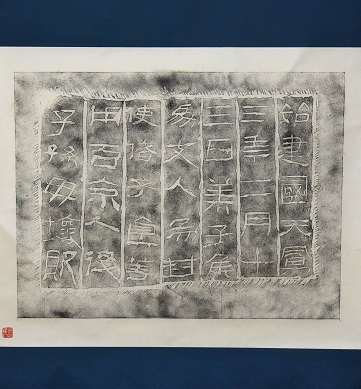 始建國天鳳
三年二月十
三日萊子侯
為支人為封
使諸子食等
用百余人後
子孫毋壞敗